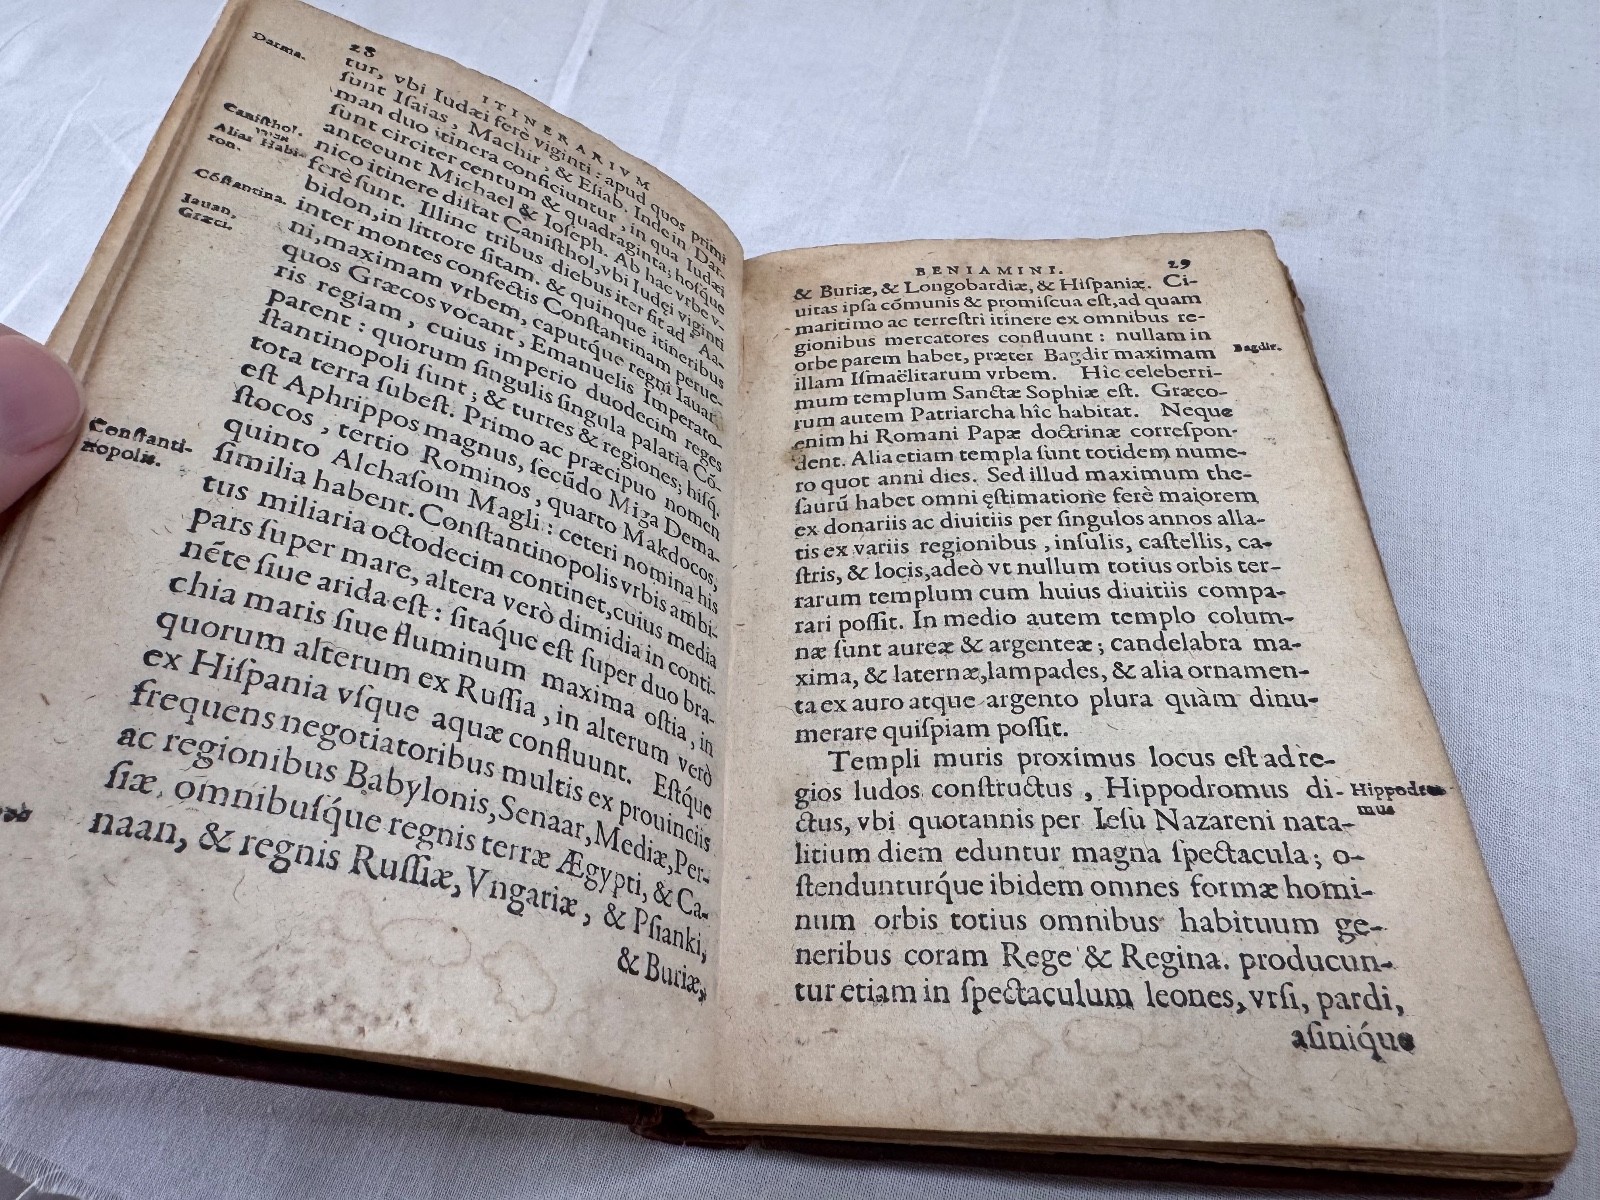 28
ITINERARIVM
tur, vbi Iudæi ferè viginti: apud quos primi
Darma.
sunt Isaias, Machir & Esiab. Inde in Dar-
man duo itinera conficiuntur, in qua Iudæi
sunt circiter centum & quadraginta; hosq́ue
anteeunt Michael & Ioseph. Ab hac vrbe v-
Canisthol.
nico itinere distat Canisthol, vbi Iudęi viginti
Alias Habi-
ron.
ferè sunt. Illinc tribus diebus iter fit ad Aa-
bidon, in littore sitam. & quinque itineribus
Cõstantina.
inter montes confectis Constantinam perue-
ni, maximam vrbem, caputq́ue regni Iauan,
Iauan,
Græci.
quos Græcos vocant, Emanuelis Imperato-
ris regiam, cuius imperio duodecim reges
parent: quorum singulis singula palatia Cõ-
stantinopoli sunt; & turres & regiones; hisq́.
tota terra subest. Primo ac præcipuo nomen
est Aphrippos magnus, secũdo Miga Dema-
stocos, tertio Rominos, quarto Makdocos,
quinto Alchasom Magli: ceteri nomina his
Constanti-
nopolis.
similia habent. Constantinopolis vrbis ambi-
tus miliaria octodecim continet, cuius media
pars super mare, altera verò dimidia in conti-
nẽte siue arida est: sitáque est super duo bra-
chia maris siue fluminum maxima ostia, in
quorum alterum ex Russia, in alterum verò
ex Hispania vsque aquæ confluunt. Estq́ue
frequens negotiatoribus multis ex prouinciis
ac regionibus Babylonis, Senaar, Mediæ, Per-
siæ, omnibusq́ue regnis terræ Ægypti, & Ca-
naan, & regnis Russiæ, Vngariæ, & Psianki,
& Buriæ,
BENIAMINI.
29
& Buriæ, & Longobardiæ, & Hispaniæ. Ci-
uitas ipsa cõmunis & promiscua est, ad quam
maritimo ac terrestri itinere ex omnibus re-
gionibus mercatores confluunt: nullam in
orbe parem habet, præter Bagdir maximam
Bagdir.
illam Ismaëlitarum vrbem. Hîc celeberri-
mum templum Sanctæ Sophiæ est. Græco-
rum autem Patriarcha hîc habitat. Neque
enim hi Romani Papæ doctrinæ correspon-
dent. Alia etiam templa sunt totidem nume-
ro quot anni dies. Sed illud maximum the-
saurũ habet omni ęstimatione ferè maiorem
ex donariis ac diuitiis per singulos annos alla-
tis ex variis regionibus, insulis, castellis, ca-
stris, & locis, adeò vt nullum totius orbis ter-
rarum templum cum huius diuitiis compa-
rari possit. In medio autem templo colum-
næ sunt aureæ & argenteæ; candelabra ma-
xima, & laternæ, lampades, & alia ornamen-
ta ex auro atque argento plura quàm dinu-
merare quispiam possit.
Templi muris proximus locus est ad re-
gios ludos constructus, Hippodromus di-
Hippodro-
mus
ctus, vbi quotannis per Iesu Nazareni nata-
litium diem eduntur magna spectacula; o-
stendunturq́ue ibidem omnes formæ homi-
num orbis totius omnibus habituum ge-
neribus coram Rege & Regina. producun-
tur etiam in spectaculum leones, vrsi, pardi,
asiniq́ue